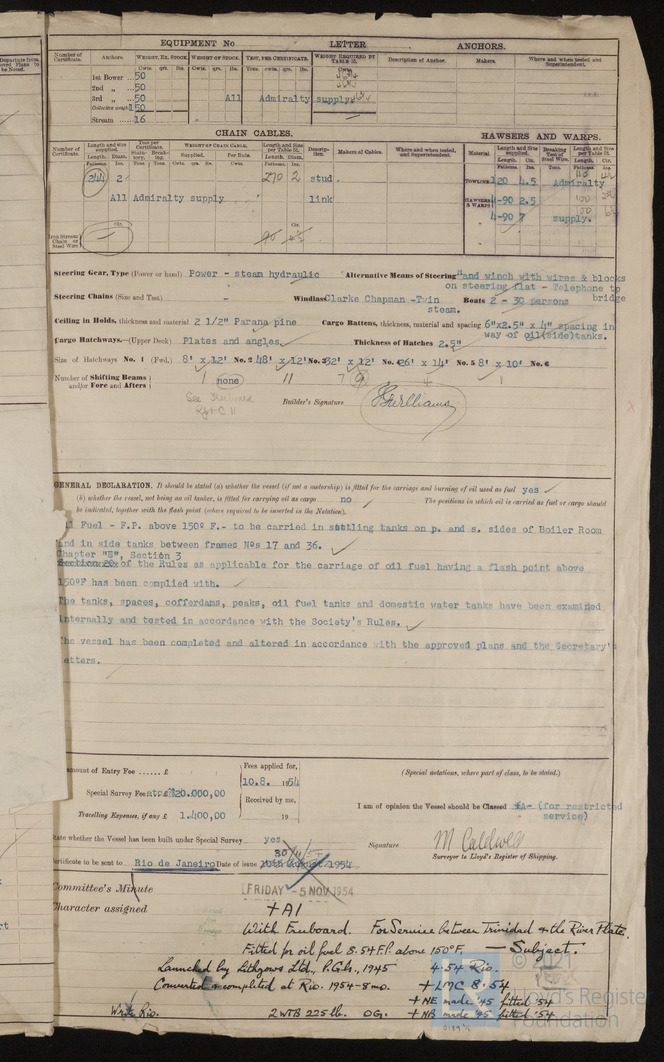 EQUIPMENT No LETTER ANCHORS.
Number of Certificate. Anchors. WEIGHT, EX. STOCK WEIGHT OF STOCK. TEST, PER CERTIFICATE. WEIGHT REQUIRED BY TABLE 31. Description of Anchor. Makers. Where and when tested and Superintendent.
Cwts. qrs. lbs. Cwts. qrs. lbs. Tons. cwts. qrs. lbs. Cwts.
1st Bower .. 50
2nd „ .. 50
3rd „ .. 50 All Admiralty supply.
Collective weight 150
Stream ..... 16
CHAIN CABLES. HAWSERS AND WARPS.
Number of Certificate. Length and size supplied. Test per Certificate. WEIGHT OF CHAIN CABLE. Length and Size per Table 31. Description. Makers of Cables. Where and when tested, and Superintendent. Material Length and Size supplied. Breaking Test of Steel Wire. Length and Size per Table 31.
Length. Diam. Statutory. Breaking. Supplied. Per Rule. Length. Diam. Length. Cir. Length. Cir.
Fathoms. Ins. Tons Tons Cwts. qrs. lbs. Cwts. Fathoms. Ins. Fathoms. Ins. Tons. Fathoms. Ins.
244 2 270 2 stud TOWLINE 120 4.5 Admiralty
All Admiralty supply link HAWSERS & WARPS 4-90 2.5 100
4-90 7 supply. 100
Iron Stream Chain or Steel Wire
Steering Gear, Type (Power or hand) Power - steam hydraulic Alternative Means of Steering Hand winch with wires & blocks
on steering flat - Telephone to bridge
Steering Chains (Size and Test) - Windlass Clarke Chapman -Twin steam. Boats 2 - 30 persons
Ceiling in Holds, thickness and material 2 1/2" Parana pine Cargo Battens, thickness, material and spacing 6"x2.5" x 4" spacing in
way of oil(side)tanks.
Cargo Hatchways.—(Upper Deck) Plates and angles. Thickness of Hatches 2.5"
Size of Hatchways No. 1 (Fwd.) 8' x 12' No. 2 48' x 12' No. 3 32' x 12' No. 4 26' x 14' No. 5 8' x 10' No. 6
Number of Shifting Beams and/or Fore and Afters 1 none 11 7 9 4 1
See Freeboard
Rpt C 11
Builder's Signature JS Williams
GENERAL DECLARATION. It should be stated (a) whether the vessel (if not a motorship) is fitted for the carriage and burning of oil used as fuel yes
(b) whether the vessel, not being an oil tanker, is fitted for carrying oil as cargo no The positions in which oil is carried as fuel or cargo should
be indicated, together with the flash point (where required to be inserted in the Notation).
Fuel - F.P. above 150º F.- to be carried in settling tanks on p. and s. sides of Boiler Room
and in side tanks between frames Nºs 17 and 36.
Chapter "E", Section 3
Section 20 of the Rules as applicable for the carriage of oil fuel having a flash point above
150ºF has been complied with.
The tanks, spaces, cofferdams, peaks, oil fuel tanks and domestic water tanks have been examined
internally and tested in accordance with the Society's Rules.
The vessel has been completed and altered in accordance with the approved plans and the Secretary's
letters.
Amount of Entry Fee ...... £ Fees applied for,
10.8. 1954
(Special notations, where part of class, to be stated.)
Special Survey Fee 20.000,00 Received by me,
I am of opinion the Vessel should be Classed +A- (for restricted
service)
Travelling Expenses, if any £ 1.400,00 19
State whether the Vessel has been built under Special Survey yes
Signature M Caldwell
Surveyor to Lloyd's Register of Shipping.
Certificate to be sent to Rio de Janeiro Date of issue 10th August 1954
30/11/54
Committee's Minute FRIDAY - 5 NOV 1954
Character assigned +A1
With Freeboard. For Service between Trinidad & the River Plate.
Fitted for oil fuel 8.54 F.P. above 150°F. — Subject.
Launched by Lithgows Ltd., P. Gls., 1945 4.54 Rio.
Converted & completed at Rio. 1954-8mo. +LMC 8.54
+ NE made '45 fitted '54
Write Rio. 2 WTB 225 lb. OG. + NB made '45 fitted '54
© 2021
Lloyd's Register
Foundation